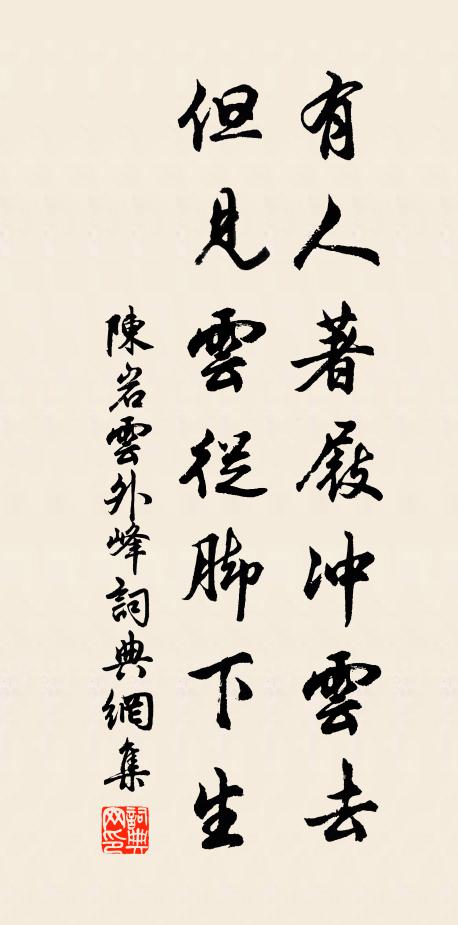 有人著屐冲雲去
但見雲從脚下生
陳岩雲外峰詞典網集
詞典网印